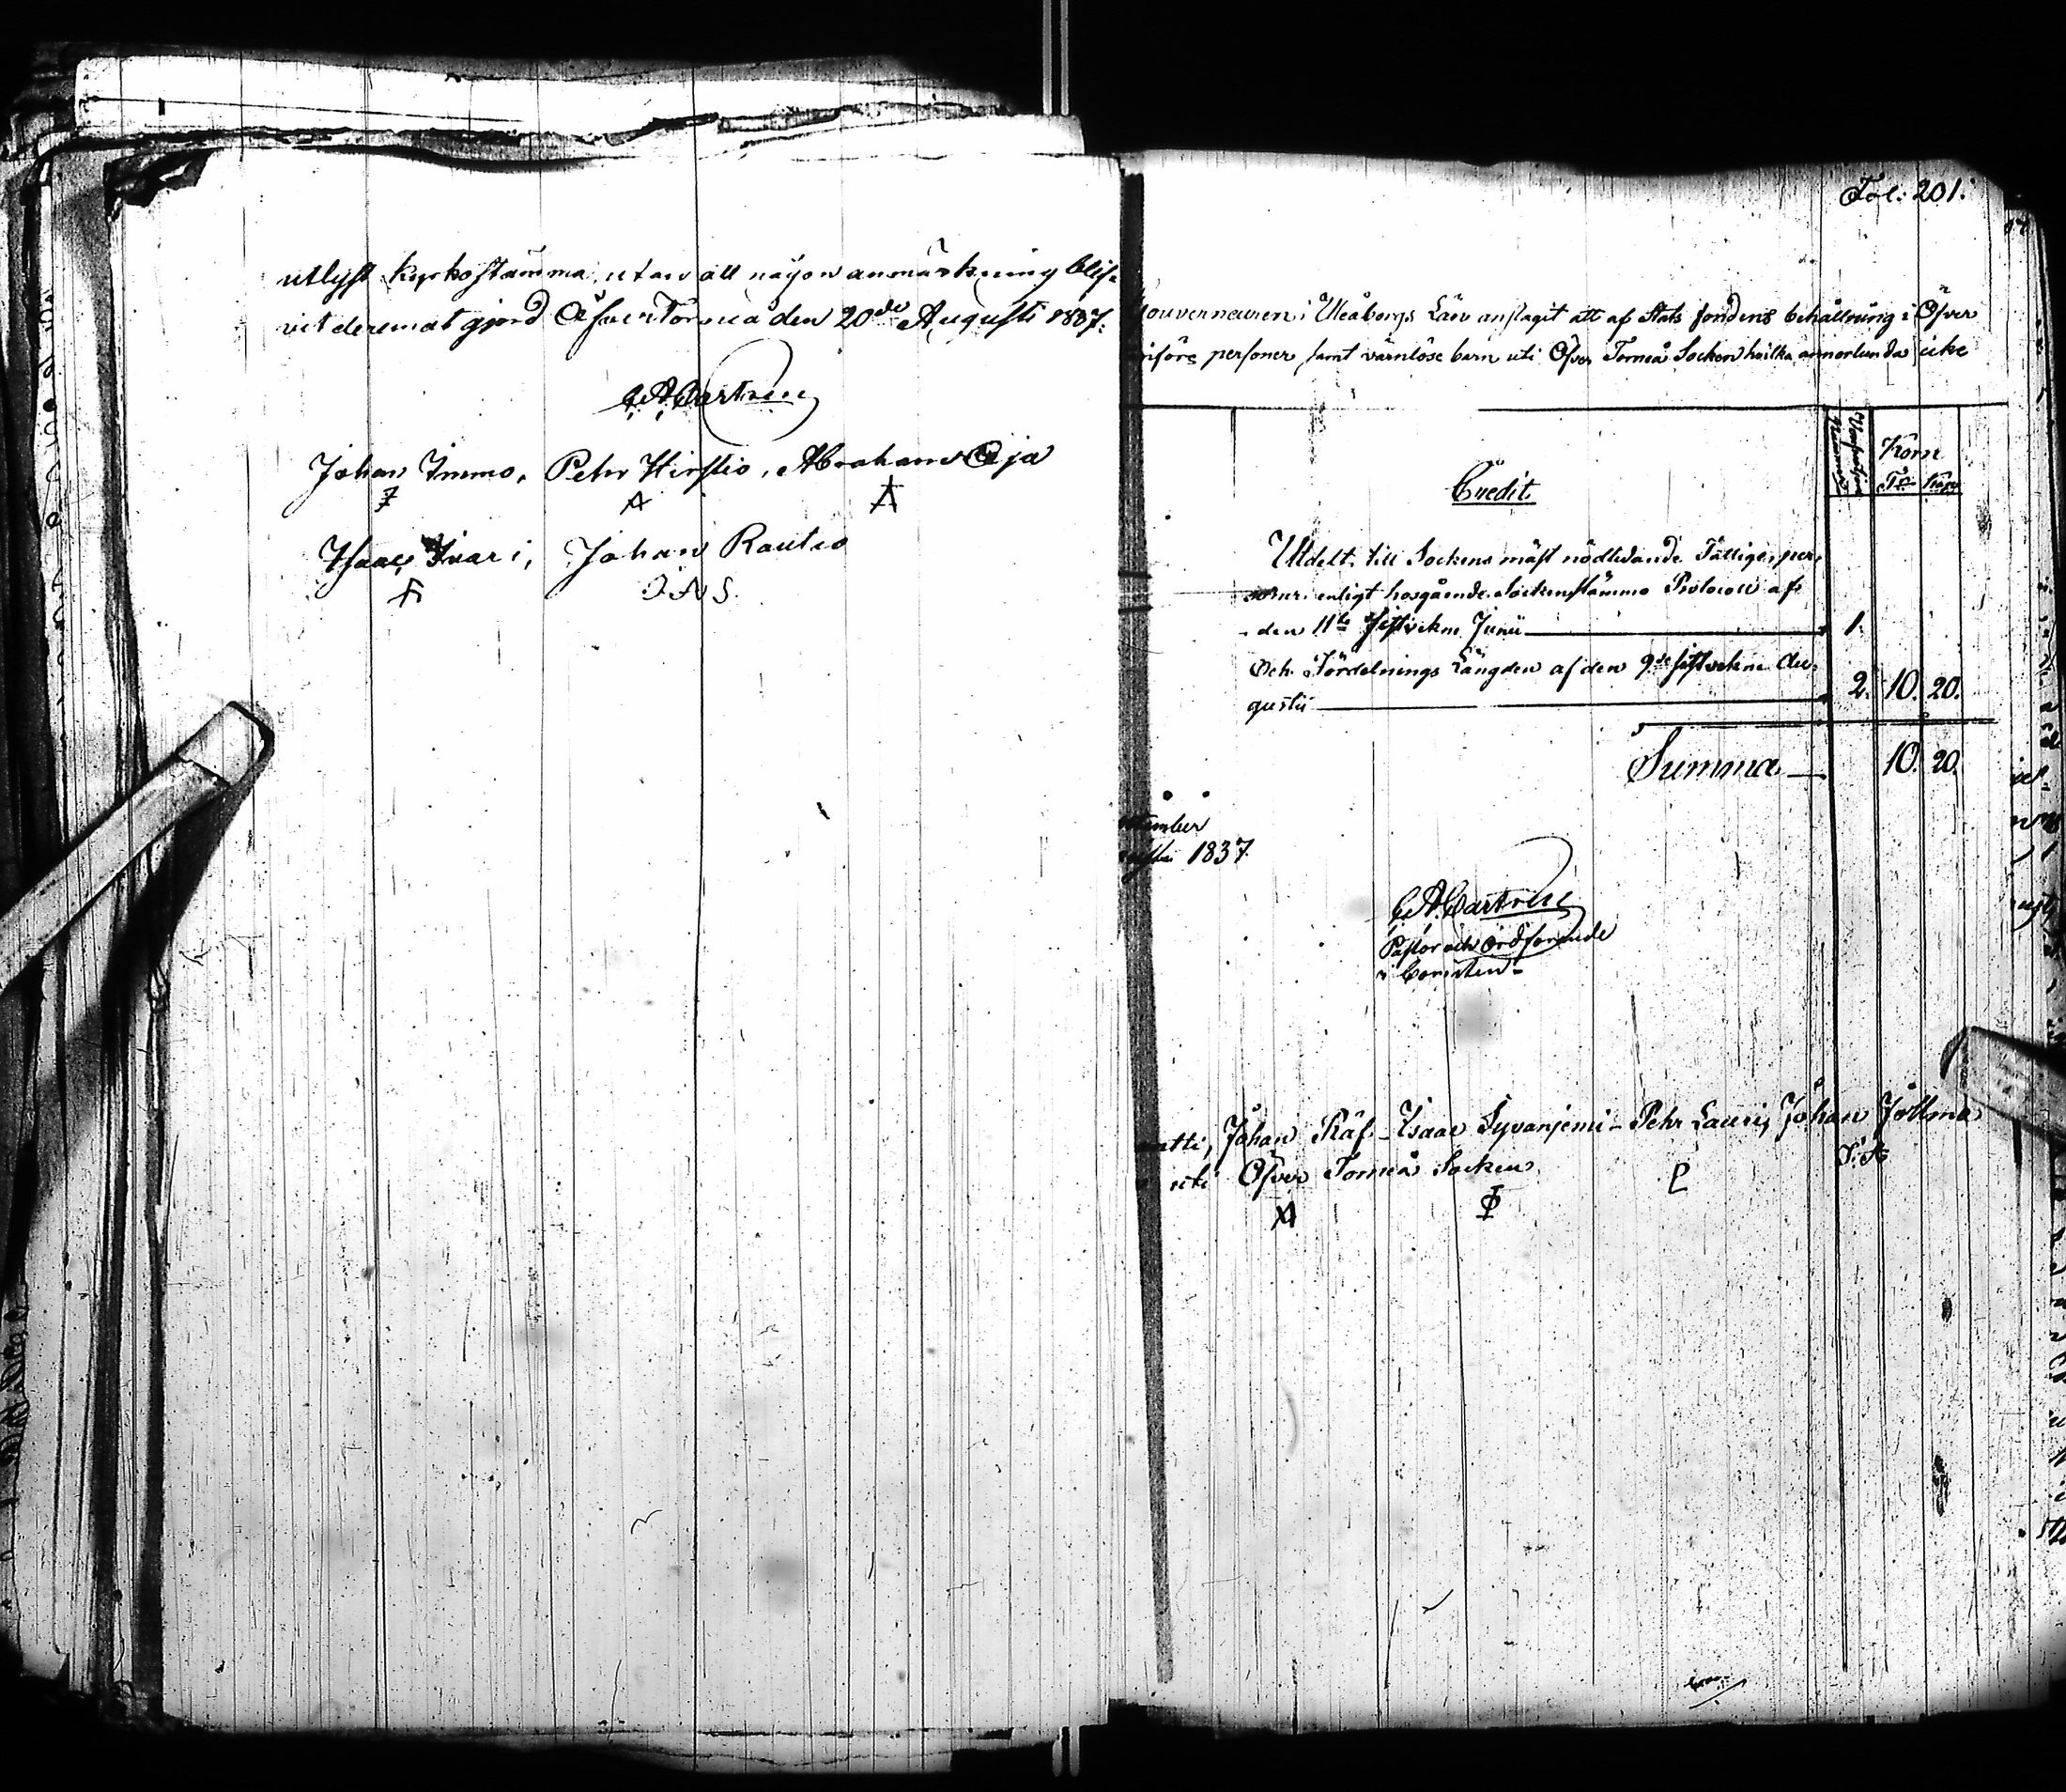 utlyst kyrkostämma, utan att någon anmärkning blif-
vit deremot gjord Öfver Torneå den 20de Augusti 1837.
Johan Immo, Pehr Hirstio, Abraham Oja
Isaac Juari, Johan Rautio
J. A. S.
Fol: 201.
Gouverneuren i Uleåborgs Län anslagit att af Stats fondens behållning i Öfver
personer, samt värnlöse barn uti Öfver Torneå Socken hvilka annorlunda icke
Korn
Tr Kapp
Credit
Utdelt till Sockens mäst nödlidande Fattige per-
soner enligt hosgående Sockenstämmo Protocoll af
den 11te sistvekne Junii 1.
Och Fördelnings Längden af den 9de sistvekne Au-
gustii 2. 10. 20.
Summa 10. 20.
1837.
Pastor och Ordförande
i Comiten
Johan Räf - Isaac Syvänjemi - Pehr Lauri, Johan
uti Öfver Torneå Socken
P